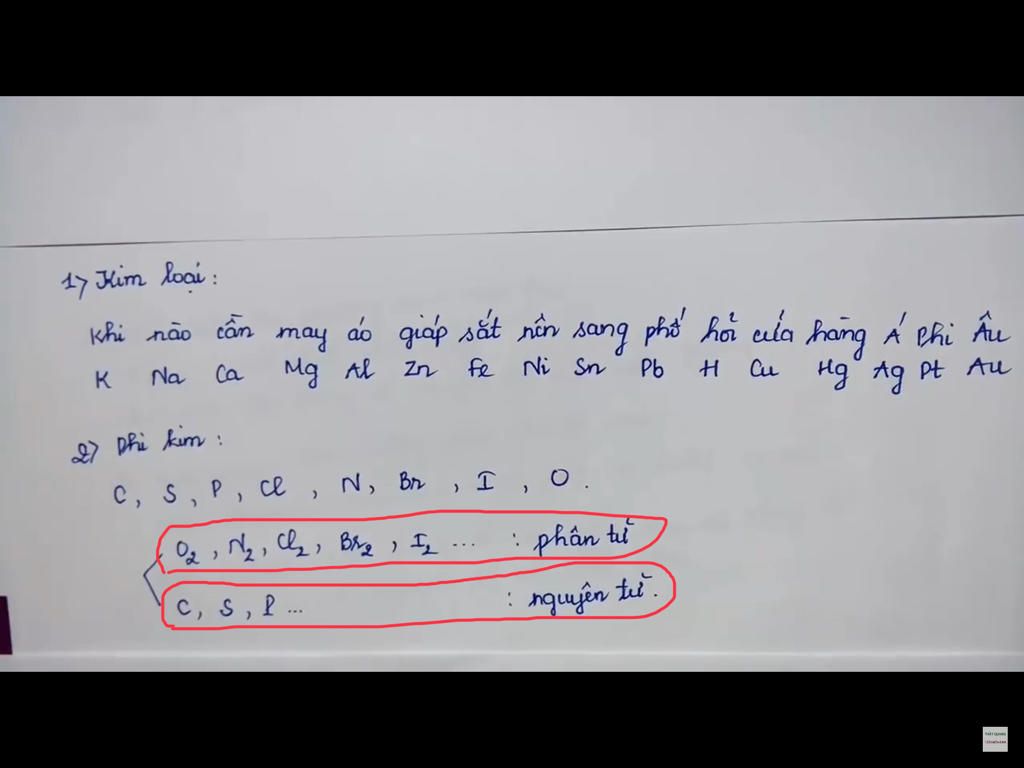 1) Kim loại:
Khi nào cần may áo giáp sắt nên sang phố hỏi cửa hàng Á Phi Âu
K Na Ca Mg Al Zn Fe Ni Sn Pb H Cu Hg Ag Pt Au
2) Phi kim:
C, S, P, Cl, N, Br, I, O.
O₂, N₂, Cl₂, Br₂, I₂ ... : phân tử
C, S, P ... : nguyên tử.